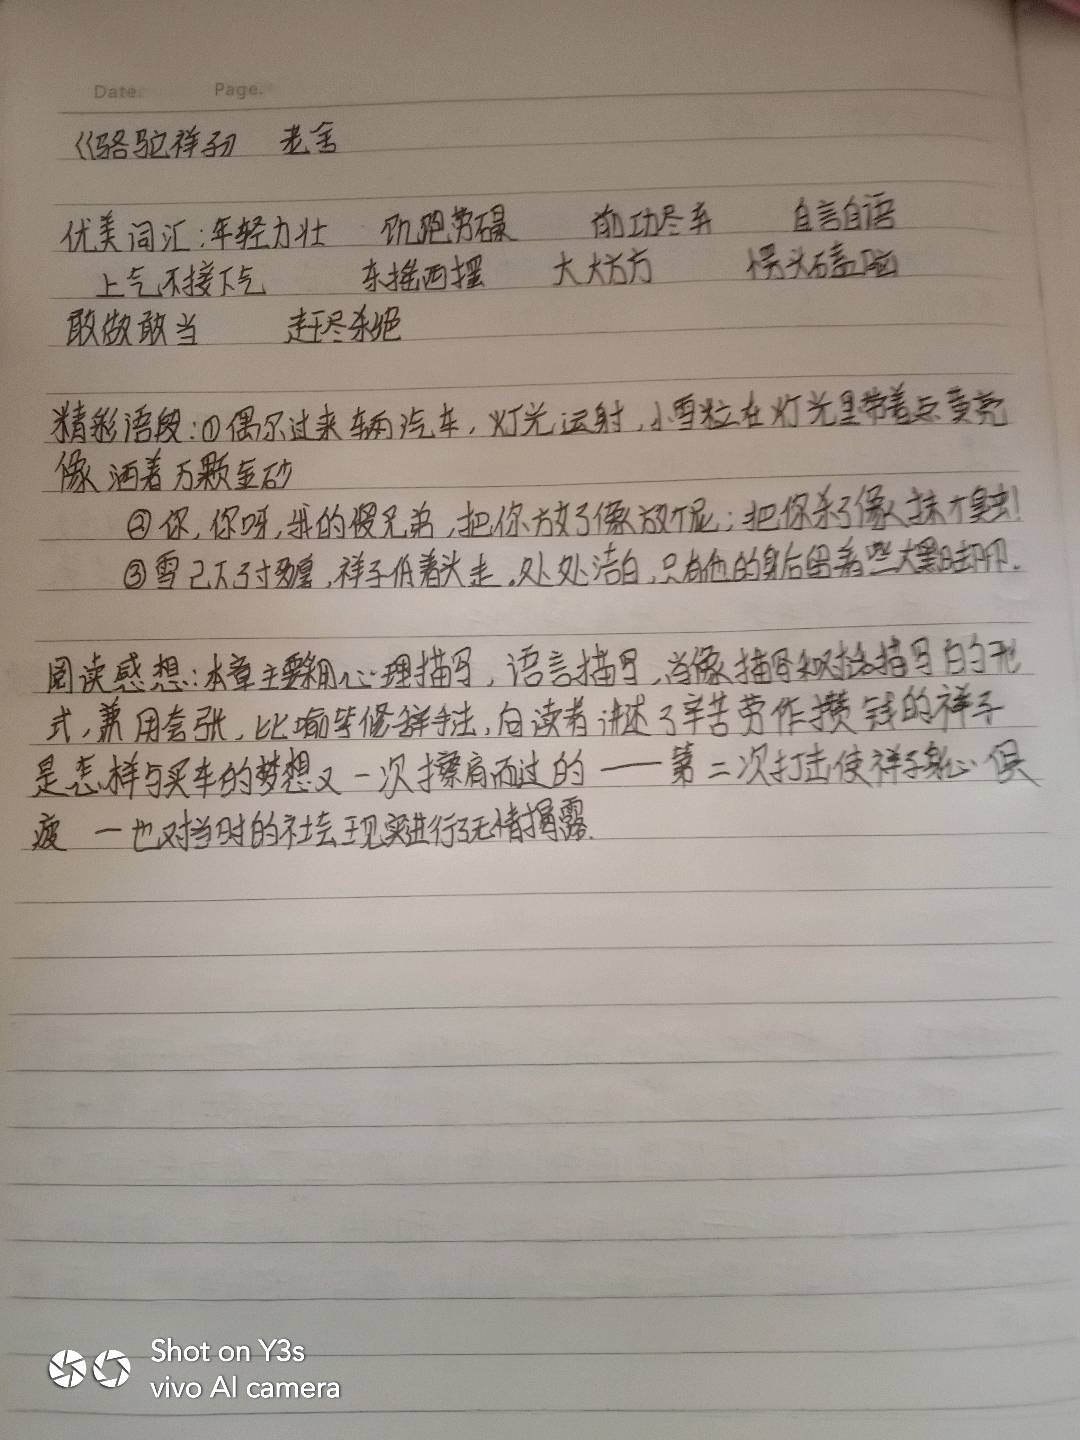 Date. Page.
《骆驼祥子》 老舍
优美词汇:年轻力壮 饥跑劳碌 前功尽弃 自言自语
上气不接下气 东摇西摆 大大方方 愣头磕脑
敢做敢当 赶尽杀绝
精彩语段:①偶尔过来辆汽车,灯光远射,小雪粒在灯光里带着点黄亮
像洒着万颗金砂
②你,你呀,我的傻兄弟,把你放了像放个屁;把你杀了像抹个臭虫!
③雪已下了寸多厚,祥子低着头走,处处洁白,只有他的身后留着些大黑脚印.
阅读感想:本章主要采用心理描写,语言描写,肖像描写和对话描写的形
式,兼用夸张,比喻等修辞手法,向读者讲述了辛苦劳作攒钱的祥子
是怎样与买车的梦想又一次擦肩而过的——第二次打击使祥子身心俱
疲 一也对当时的社会现实进行了无情揭露.
Shot on Y3s
vivo AI camera